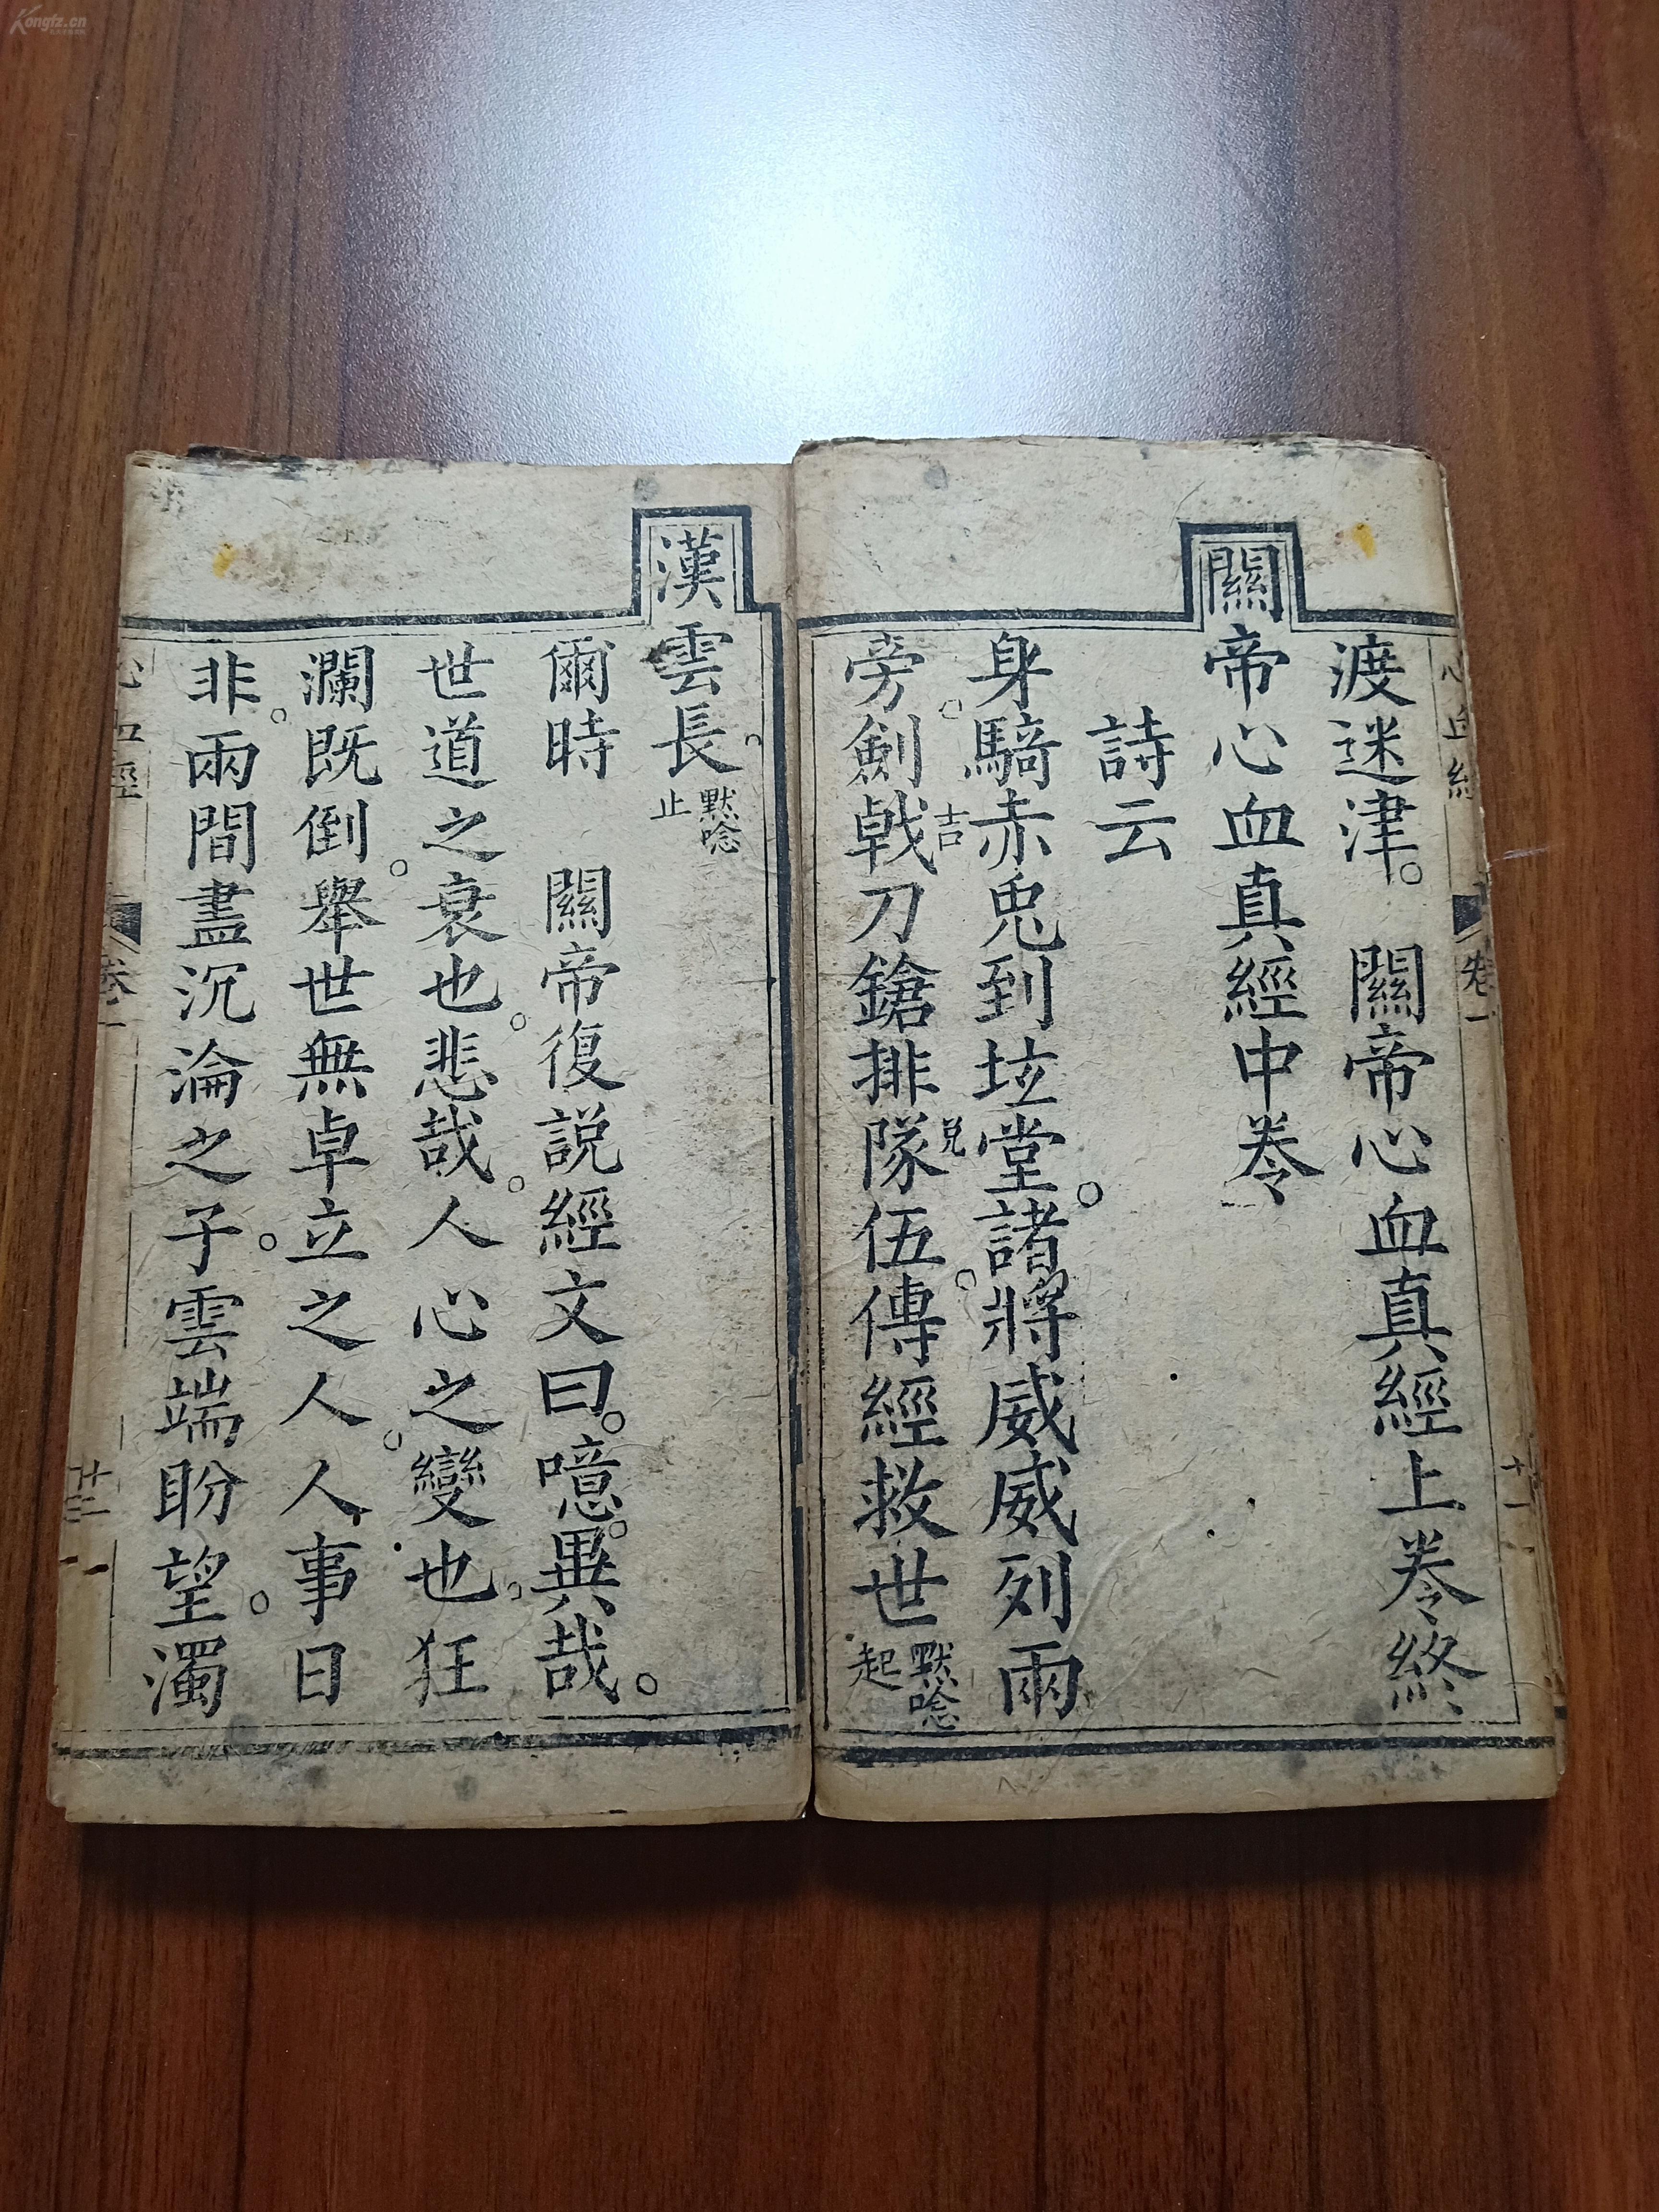 渡迷津。 關帝心血真經上卷終
關帝心血真經中卷
詩云
身騎赤兎到坛堂。諸將威威列兩
旁。劍戟刀鎗排隊伍。傳經救世
默唸
起
吉
兑
漢雲長。
默唸
止
爾時 關帝復説經文曰。噫。異哉。
世道之衰也。悲哉。人心之變也。狂
瀾既倒。舉世無卓立之人。人事日
非。兩間盡沉淪之子。雲端盼望。濁
心血經
卷一
十一
Kongfz.cn